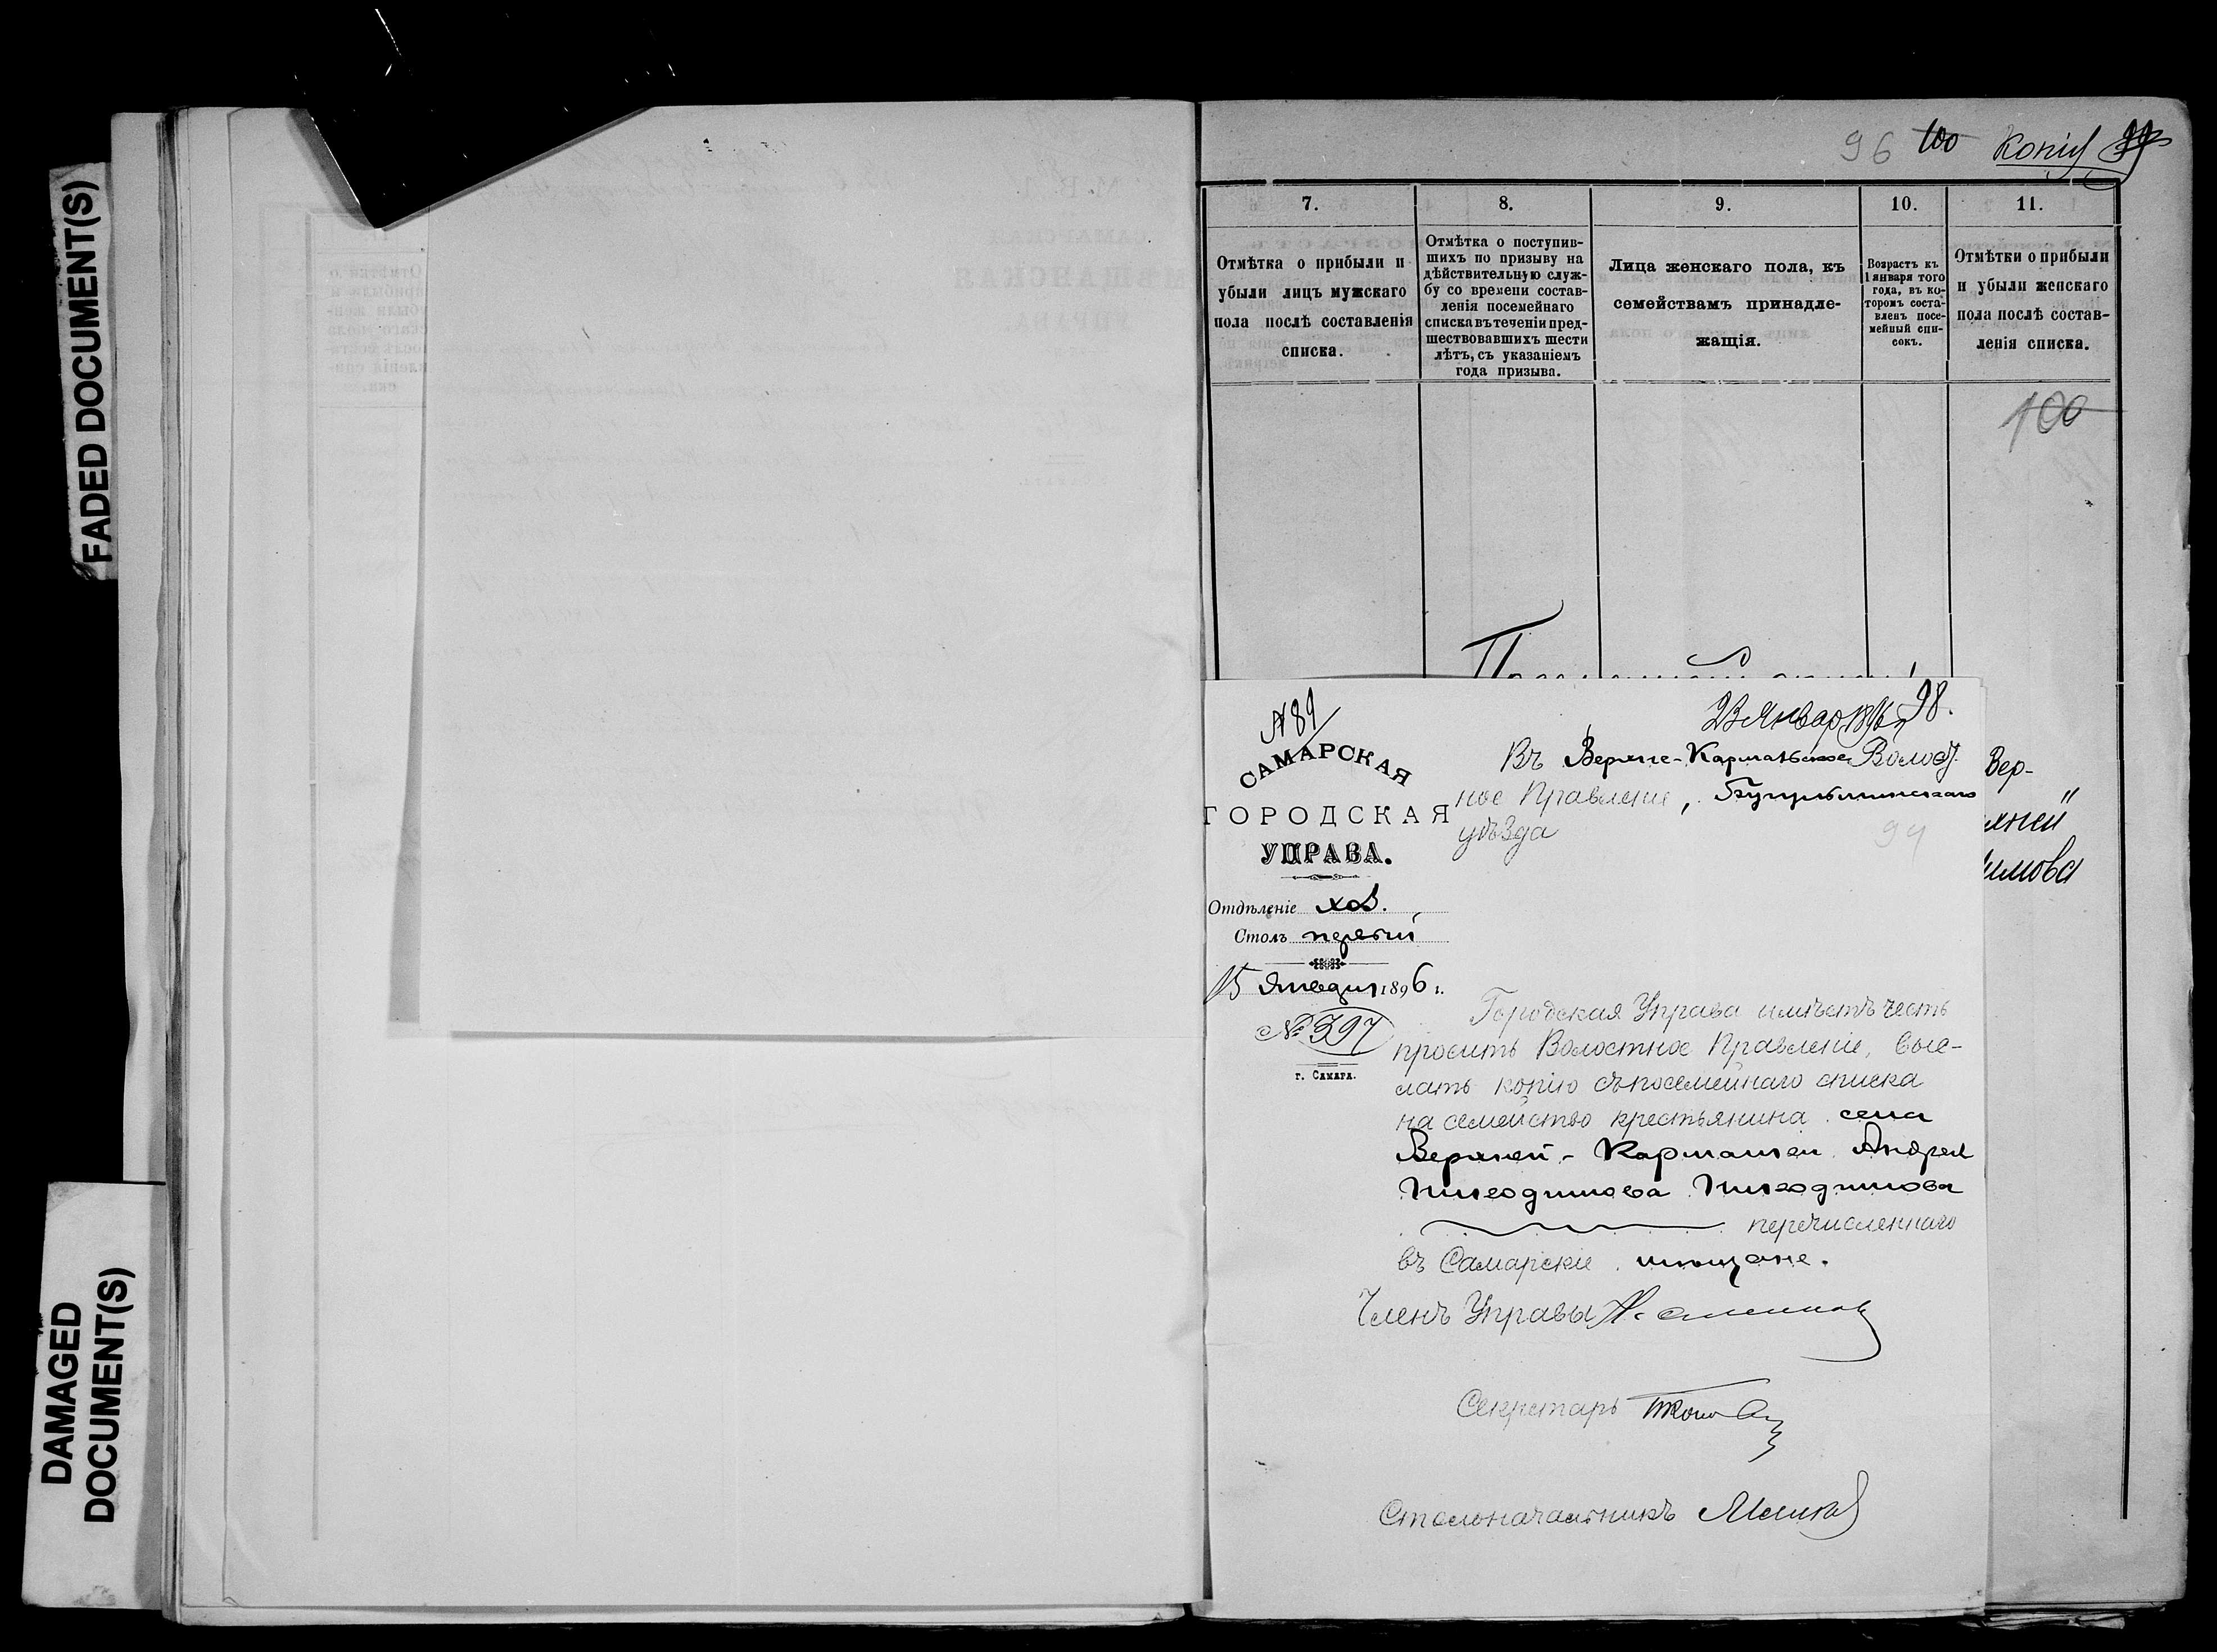 FADED DOCUMENT(S)
DAMAGED
DOCUMENT(S)
96 100 Копія 99
7.
Отмѣтка о прибыли и
убыли лицъ мужскаго
пола послѣ составленія
списка.
8.
Отмѣтка о поступив-
шихъ по призыву на
дѣйствительную служ-
бу со времени состав-
ленія посемейнаго
списка въ теченіи пред-
шествовавшихъ шести
лѣтъ, съ указаніемъ
года призыва.
9.
Лица женскаго пола, къ
семействамъ принадле-
жащія.
10.
Возрастъ къ
1 января того
года, въ ко-
торомъ соста-
вленъ посе-
мейный спи-
сокъ.
11.
Отмѣтки о прибыли
и убыли женскаго
пола послѣ состав-
ленія списка.
100
Вер-
хней
имова
N 89
САМАРСКАЯ
ГОРОДСКАЯ
УПРАВА.
Отдѣленіе хоз.
Столъ первый
15 января 1896 г.
№ 397
г. САМАРА.
23 Январ 1896 98.
Въ Верхне-Кармальское Волост
ное Правленіе, Бугульминскаго
уѣзда
94
Городская Управа имѣетъ честь
просить Волостное Правленіе, выс-
лать копію съ посемейнаго списка
на семейство крестьянина села
Верхней-Кармалки Андрея
Никодимова Никодимова
перечисленнаго
въ Самарскіе мѣщане.
Членъ Управы
Секретарь
Столоначальникъ